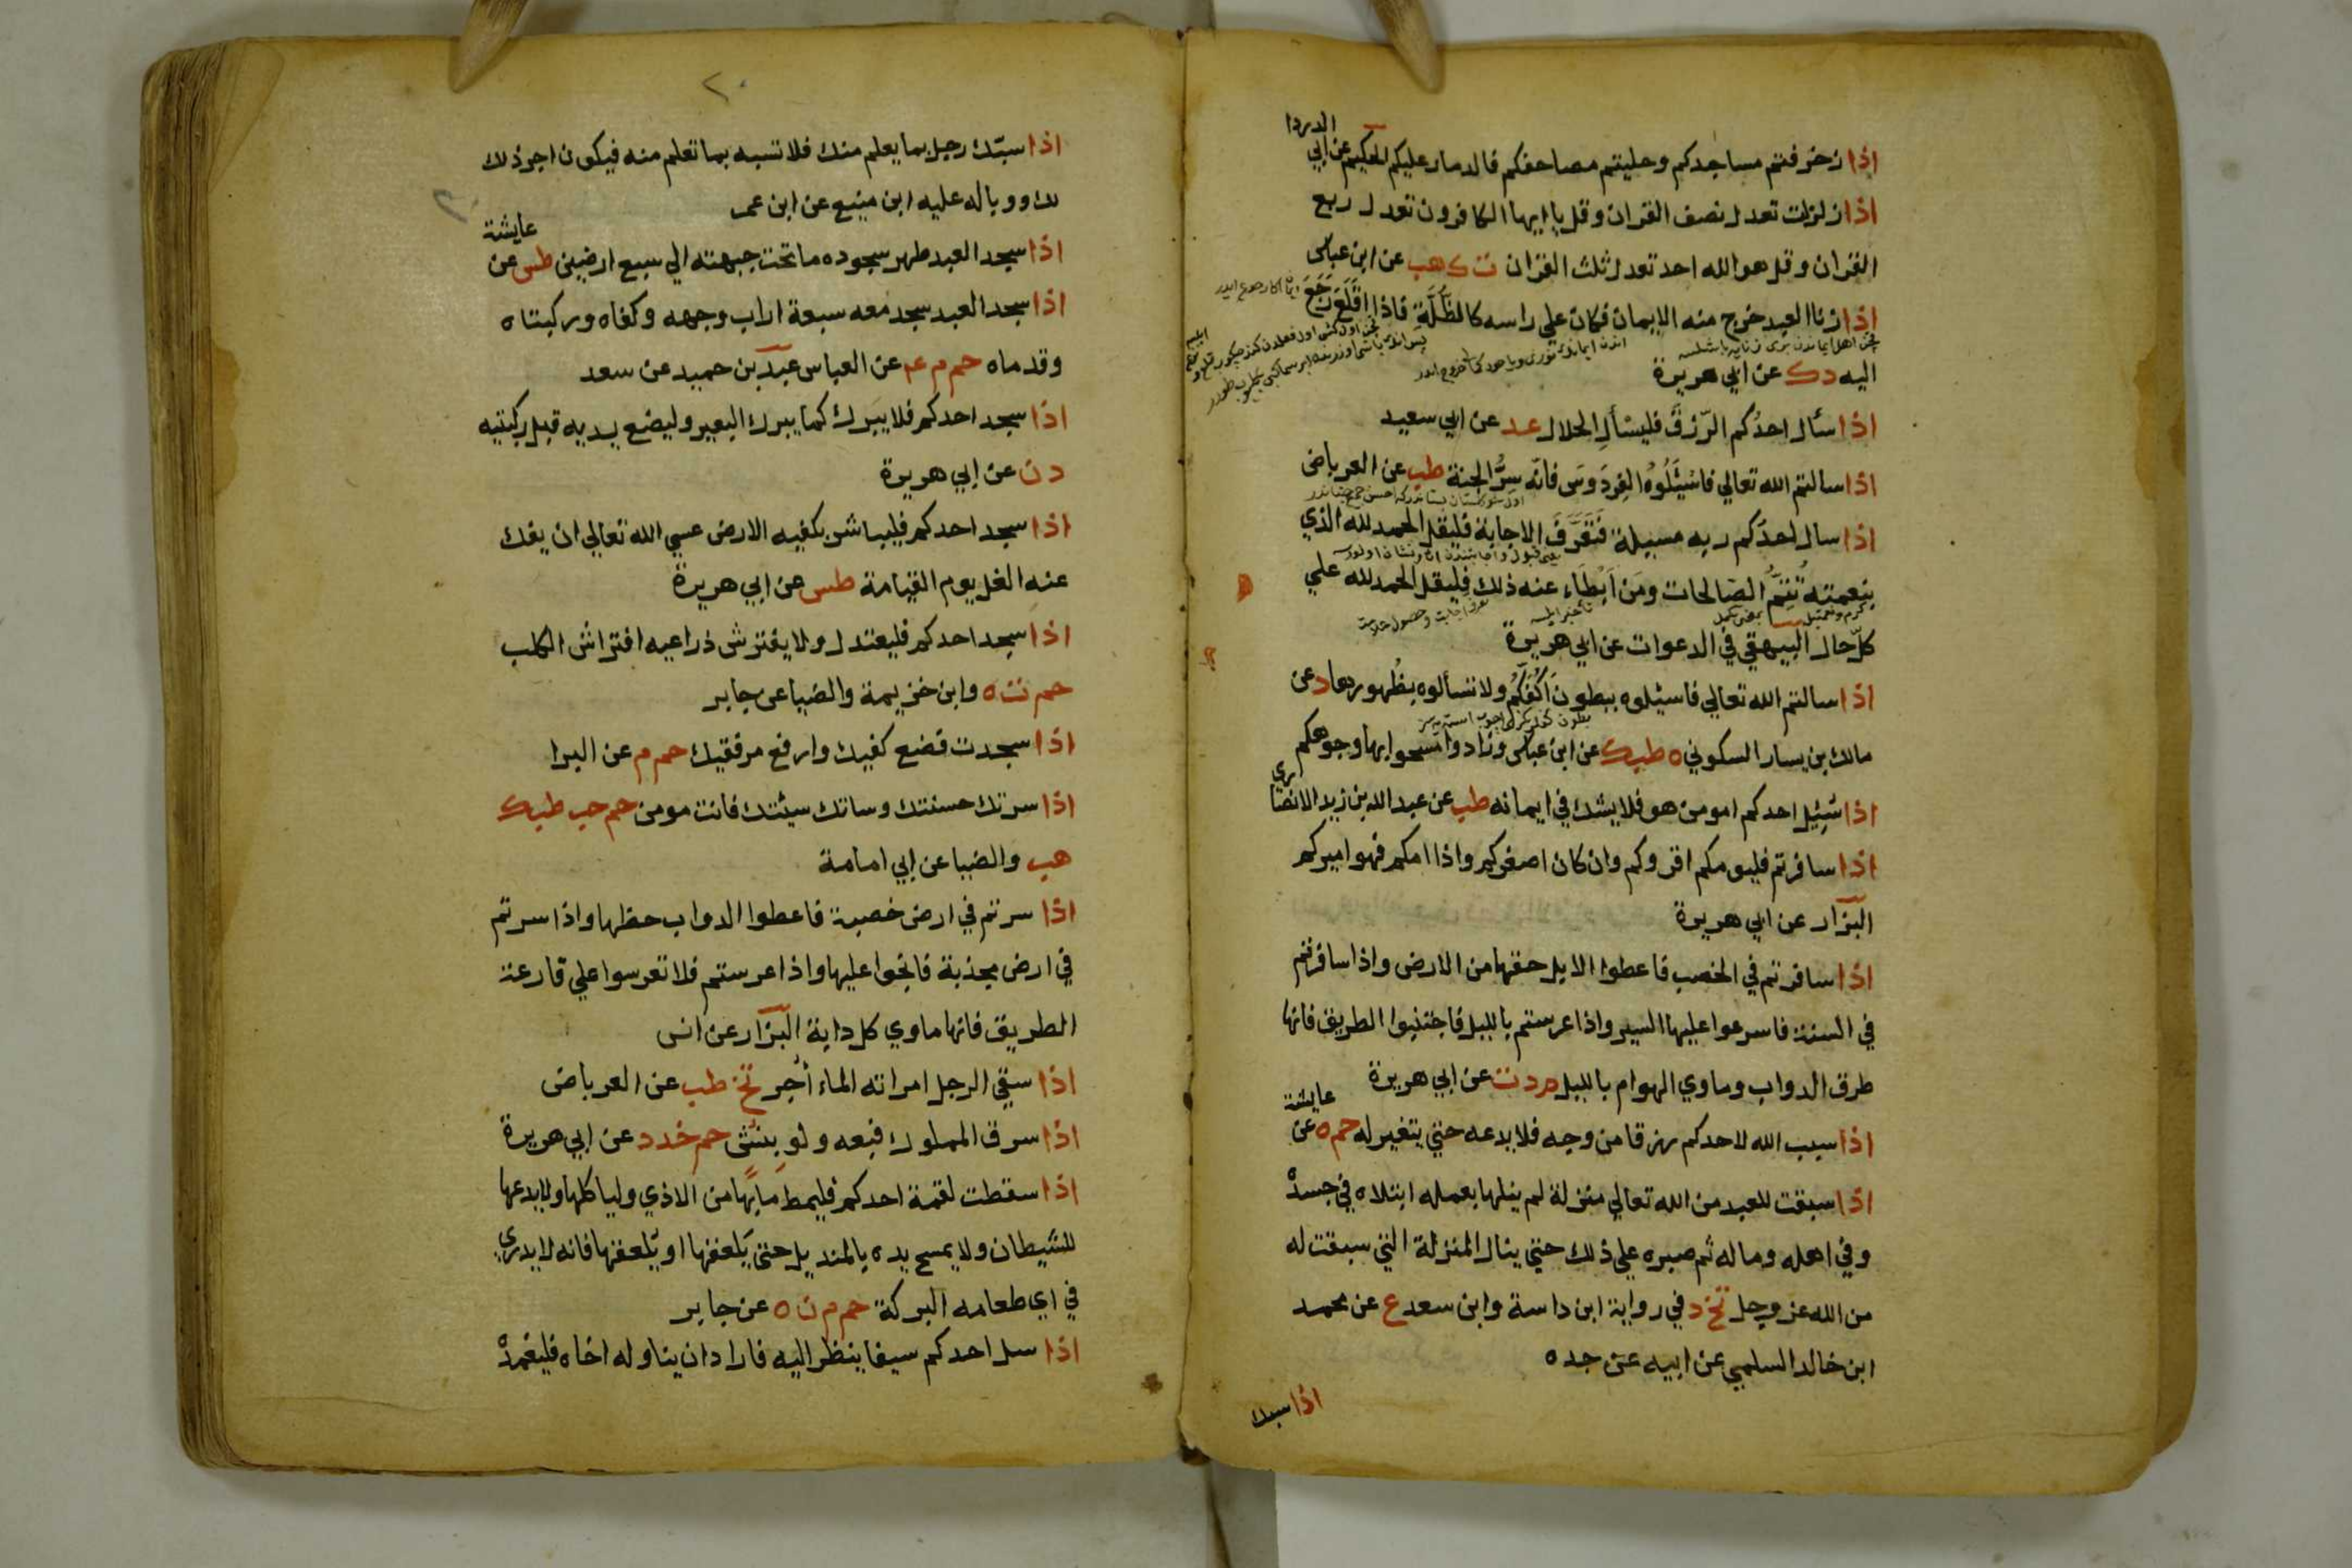 اذا زخرفتم مساجدكم وحليتم مصاحفكم فالدمار عليكم الحكيم عن ابي الدردا
اذا زلزلت تعدل نصف القران وقل يا ايها الكافرون تعدل ربع
القران وقل هو الله احد تعدل ثلث القران ت ك هب عن ابن عباس
اذا زنا العبد خرج منه الايمان فكان على راسه كالظُّلَّةِ فاذا اقلع رَجَعَ
اليه د ك عن ابي هريرة
اذا سأل احدُكم الرّزقَ فليسْألِ الحلال عد عن ابي سعيد
اذا سالتم الله تعالي فاسْئَلُوهُ الفِردَوسَ فانّه سِرُّ الجنة طب عن العرباض
اذا سال احدُكم ربه مسيلة فَتَعَرَّفَ الاجابة فليقل الحمد لله الذي
بنعمته تَتِمُّ الصّالحات ومَن اَبْطَاء عنه ذلك فليقل الحمد لله علي
كلّ حال البيهقي في الدعوات عن ابي هريرة
اذا سالتم الله تعالي فاسئلوه ببطون اَكُفِّكُم ولا تسألوه بظُهورها د عن
مالك بن يسار السكوني ه طب ك عن ابن عباس وزادوا امسحوا بها وجوهكم
اذا سُئِل احدكم امومن هو فلا يشك في ايمانه طب عن عبد الله بن زيد الانصاري
اذا سافرتم فليومكم اقروكم وان كان اصغركم واذا امكم فهو اميركم
البزّار عن ابي هريرة
اذا سافرتم في الخصب فاعطوا الابل حقها من الارض واذا سافرتم
في السنة فاسرعوا عليها السير واذا عرستم بالليل فاجتنبوا الطريق فانها
طرق الدواب وماوي الهوام بالليل م د ت عن ابي هريرة
اذا سبب الله لاحدكم رزقا من وجه فلا يدعه حتي يتغير له حم ه عن عايشة
اذا سبقت للعبد من الله تعالي منزلة لم ينلها بعمله ابتلاه في جسده
وفي اهله وماله ثم صبره علي ذلك حتي ينال المنزلة التي سبقت له
من الله عز وجل تخ د في رواية ابن داسة وابن سعد ع عن محمد
ابن خالد السلمي عن ابيه عن جده
اذا سبك
٢٠
اذا سبّك رجل بما يعلم منك فلا تسبه بما تعلم منه فيكون اجر ذلك
لك ووباله عليه ابن منيع عن ابن عمر
اذا سجد العبد طهر سجوده ما تحت جبهته الي سبع ارضين طس عن عايشة
اذا سجد العبد سجد معه سبعة اراب وجهه وكفاه وركبتاه
وقدماه حم م ع عن العباس عبد بن حميد عن سعد
اذا سجد احدكم فلا يبرك كما يبرك البعير وليضع يديه قبل ركبتيه
د ن عن ابي هريرة
اذا سجد احدكم فليباشر بكفيه الارض عسي الله تعالي ان يفك
عنه الغل يوم القيامة طس عن ابي هريرة
اذا سجد احدكم فليعتدل ولا يفترش ذراعيه افتراش الكلب
حم ت ه وابن خزيمة والضيا عن جابر
اذا سجدت فضع كفيك وارفع مرفقيك حم م عن البرا
اذا سرتك حسنتك وساتك سيئتك فانت مومن حم حب طب ك
هب والضيا عن ابي امامة
اذا سرتم في ارض خصبة فاعطوا الدواب حظها واذا سرتم
في ارض مجدبة فانجوا عليها واذا عرستم فلا تعرسوا علي قارعة
الطريق فانها ماوي كل دابة البزّار عن انس
اذا سقي الرجل امراته الماء اُجر تخ طب عن العرباض
اذا سرق المملوك فبعه ولو بنش حم خد د عن ابي هريرة
اذا سقطت لقمة احدكم فليمط ما بها من الاذي ولياكلها ولا يدعها
للشيطان ولا يمسح يده بالمنديل حتي يلعقها او يلعقها فانه لا يدري
في اي طعامه البركة حم م ن ه عن جابر
اذا سل احدكم سيفا ينظر اليه فاراد ان يناوله اخاه فليغمده